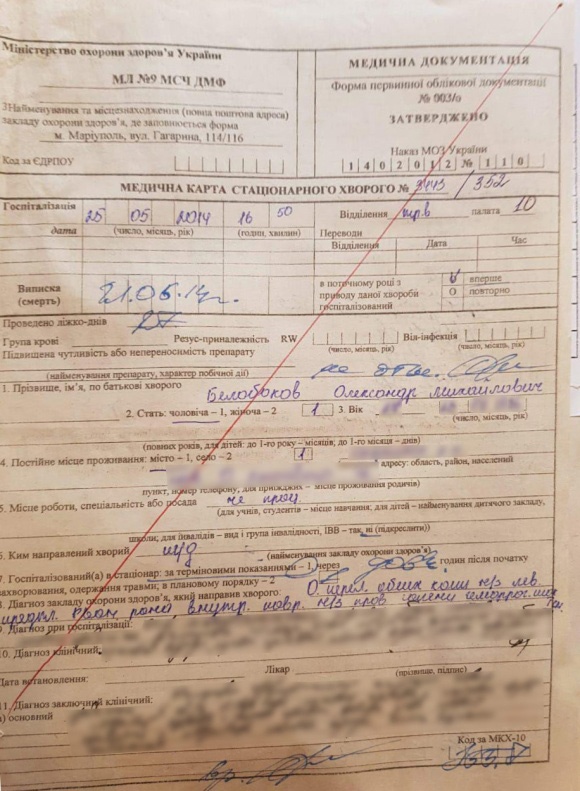 Міністерство охорони здоров'я України
МЛ №9 МСЧ ДМФ
Найменування та місцезнаходження (повна поштова адреса)
закладу охорони здоров'я, де заповнюється форма
м. Маріуполь, вул. Гагарина, 114/116
Код за ЄДРПОУ
МЕДИЧНА ДОКУМЕНТАЦІЯ
Форма первинної облікової документації
№ 003/о
ЗАТВЕРДЖЕНО
Наказ МОЗ України
14 02 2012 № 110
МЕДИЧНА КАРТА СТАЦІОНАРНОГО ХВОРОГО № /352
Госпіталізація 25 05 2014 16 50
дата (число, місяць, рік) (годин, хвилин)
Відділення палата 10
Переводи
Відділення Дата Час
Виписка
(смерть) 21.06.14г.
в поточному році з
приводу даної хвороби
госпіталізований
V вперше
О повторно
Проведено ліжко-днів 27
Група крові Резус-приналежність RW (число, місяць, рік) Віл-інфекція (число, місяць, рік)
Підвищена чутливість або непереносимість препарату
(найменування препарату, характер побічної дії)
1. Прізвище, ім'я, по батькові хворого Белобоков Олександр Михайлович
2. Стать: чоловіча – 1, жіноча – 2 1 3. Вік
(число, місяць, рік)
(повних років, для дітей: до 1-го року – місяців, до 1-го місяця – днів)
4. Постійне місце проживання: місто – 1, село – 2 1
адресу: область, район, населений
пункт, номер телефону, для приїжджих – місце проживання родичів)
5. Місце роботи, спеціальність або посада не прац.
(для учнів, студентів – місце навчання; для дітей – найменування дитячого закладу,
школи; для інвалідів – вид і група інвалідності, ІВВ – так, ні (підкреслити))
6. Ким направлений хворий
(найменування закладу охорони здоров'я)
7. Госпіталізований(а) в стаціонар: за терміновими показаннями – 1, через годин після початку
захворювання, одержання травми; в плановому порядку – 2
8. Діагноз закладу охорони здоров'я, який направив хворого: О перел. обеих кост н/з лев.
рван рана внутр. повр. н/з
9. Діагноз при госпіталізації:
10. Діагноз клінічний
Дата встановлення: Лікар (прізвище, підпис)
11. Діагноз заключний клінічний:
а) основний
Код за МКХ-10